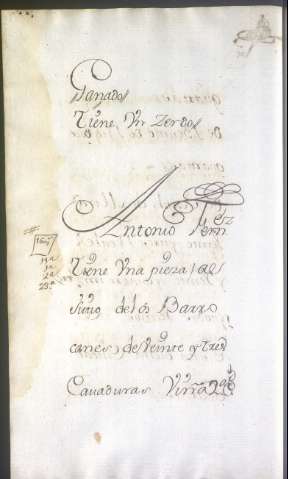 Ganados
Tiene Un Zerdos
Antonio Ferñz
Tiene Una pieza
Sitio de los Barro
canes, de Veinte y tres
Cauaduras Viña 2ª